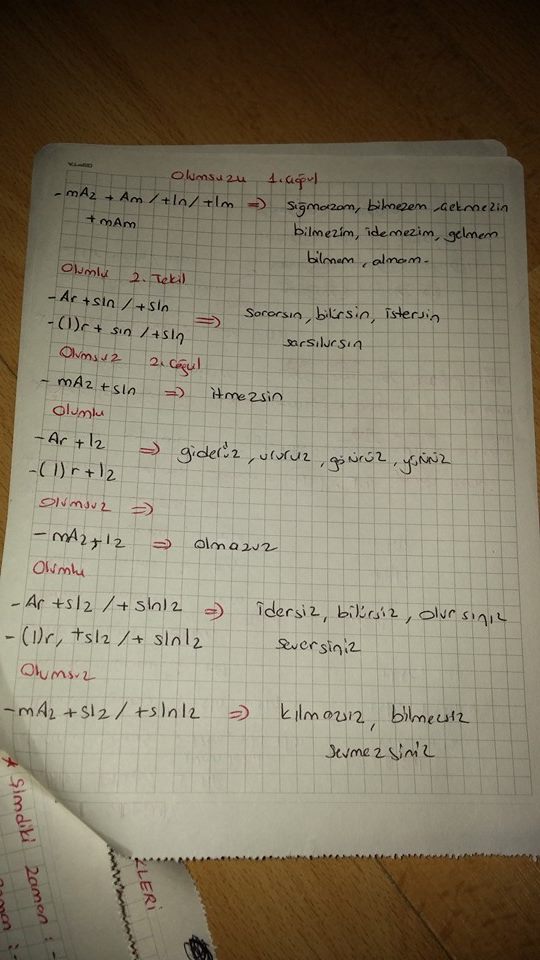 Olumsuzu 1. çoğul
-mAz + Am / +In / +Im => sığmazam, bilmezem, çekmezin
+mAm bilmezim, idemezim, gelmem
bilmem, almam.
Olumlu 2. Tekil
-Ar + sIn / + sIn => sorarsın, bilürsin, istersin
-(I)r + sın / + sIn sarsılursın
Olumsuz 2. Çoğul
-mAz + sIn => itmezsin
Olumlu
-Ar + Iz => giderüz, ururuz, görürüz, yürürüz
-(I)r + Iz
Olumsuz =>
-mAz + Iz => olmazuz
Olumlu
-Ar + sIz / + sInIz => idersiz, bilürsiz, olursınız
-(I)r, + sIz / + sInIz seversiniz
Olumsuz
-mAz + sIz / + sInIz => kılmazsız, bilmezsiz
sevmezsiniz
* Şimdiki Zaman : -
zaman :
ZLERİ